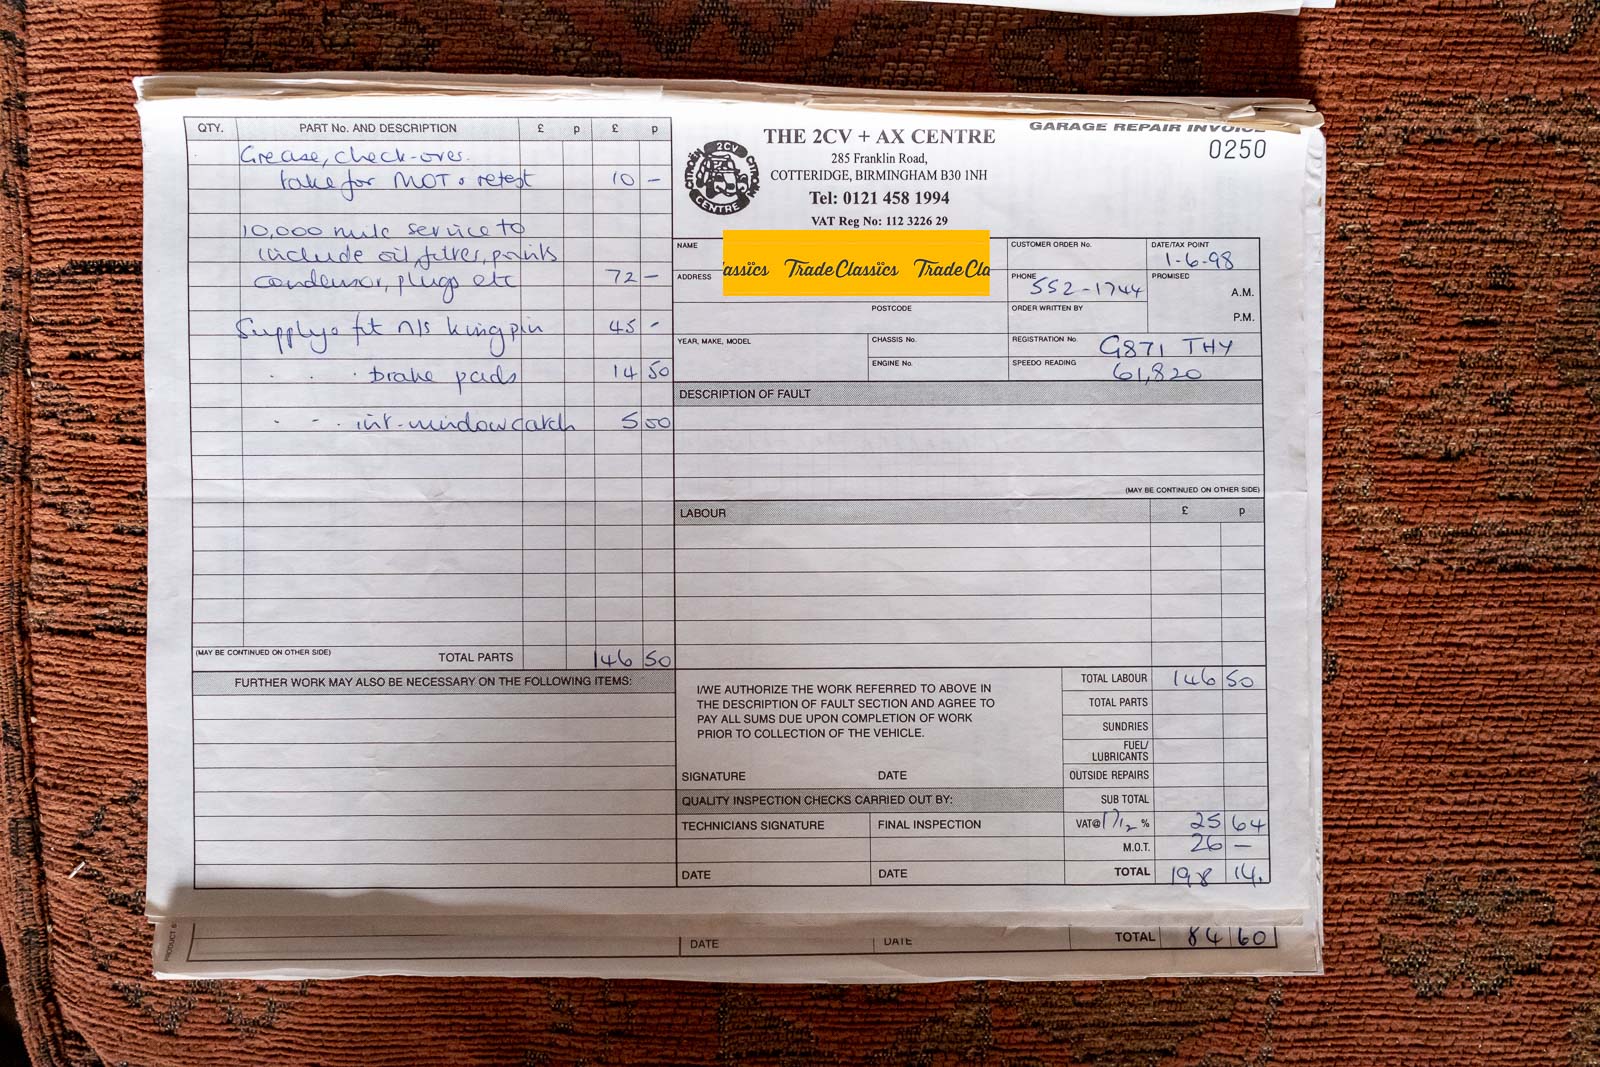 QTY. PART No. AND DESCRIPTION £ p £ p
Grease, check-over.
take for MOT & retest 10 -
10,000 mile service to
include oil, filter, points
condensor, plugs etc 72 -
Supply & fit n/s kingpin 45 -
. . . brake pads 14 50
. - . int. window catch 5 00
(MAY BE CONTINUED ON OTHER SIDE) TOTAL PARTS 146 50
FURTHER WORK MAY ALSO BE NECESSARY ON THE FOLLOWING ITEMS:
2CV
CITROËN CITROËN
CENTRE
THE 2CV + AX CENTRE
285 Franklin Road,
COTTERIDGE, BIRMINGHAM B30 1NH
Tel: 0121 458 1994
VAT Reg No: 112 3226 29
GARAGE REPAIR INVOICE
0250
NAME
assics TradeClassics TradeCla
ADDRESS
POSTCODE
CUSTOMER ORDER No.
DATE/TAX POINT
1-6-98
PHONE
552-1744
PROMISED
A.M.
P.M.
ORDER WRITTEN BY
YEAR, MAKE, MODEL
CHASSIS No.
ENGINE No.
REGISTRATION No. G871 THY
SPEEDO READING 61,820
DESCRIPTION OF FAULT
(MAY BE CONTINUED ON OTHER SIDE)
LABOUR £ p
I/WE AUTHORIZE THE WORK REFERRED TO ABOVE IN
THE DESCRIPTION OF FAULT SECTION AND AGREE TO
PAY ALL SUMS DUE UPON COMPLETION OF WORK
PRIOR TO COLLECTION OF THE VEHICLE.
SIGNATURE DATE
QUALITY INSPECTION CHECKS CARRIED OUT BY:
TECHNICIANS SIGNATURE FINAL INSPECTION
DATE DATE
TOTAL LABOUR 146 50
TOTAL PARTS
SUNDRIES
FUEL/
LUBRICANTS
OUTSIDE REPAIRS
SUB TOTAL
VAT@ 17 1/2 % 25 64
M.O.T. 26 -
TOTAL 198 14.
DATE DATE TOTAL 84 60